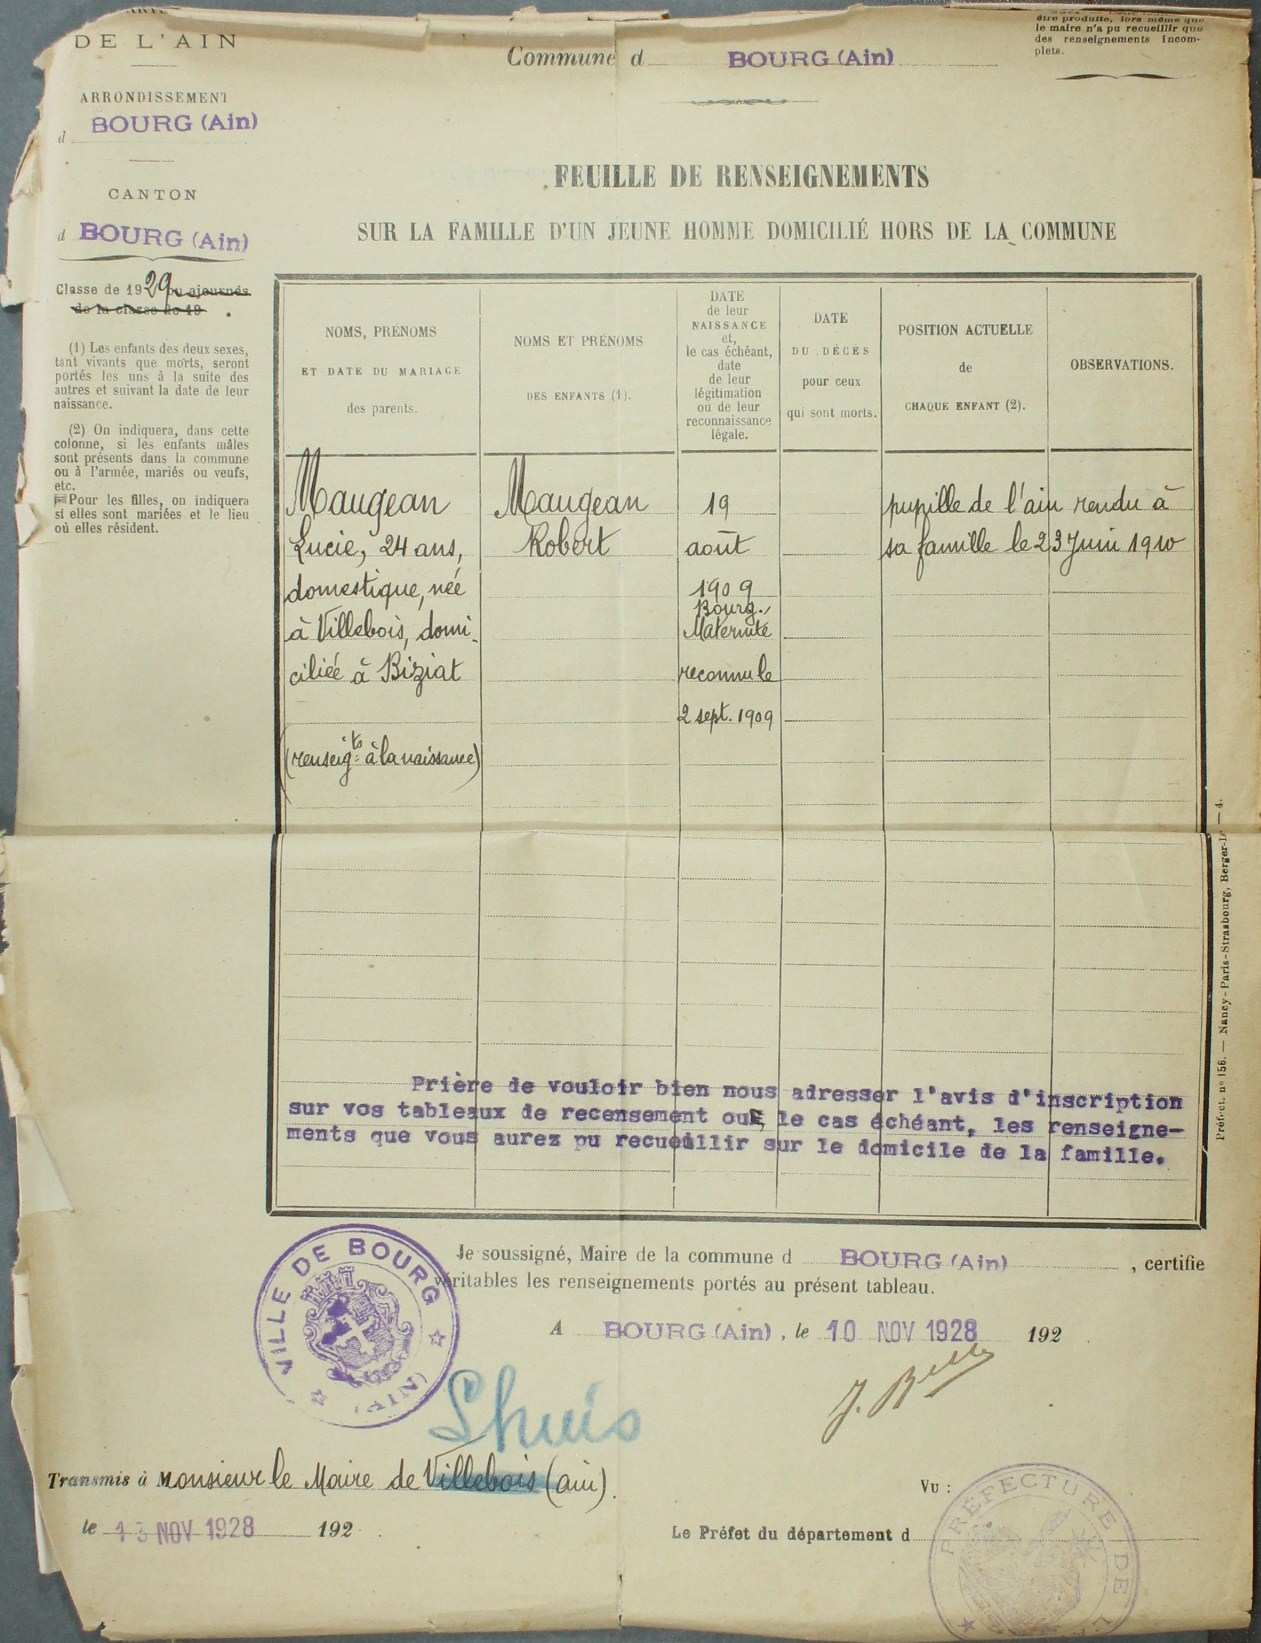 DE L'AIN
ARRONDISSEMENT
d BOURG (Ain)
CANTON
d BOURG (Ain)
Classe de 1929 ou ajournés
de la classe de 19
(1) Les enfants des deux sexes,
tant vivants que morts, seront
portés les uns à la suite des
autres et suivant la date de leur
naissance.
(2) On indiquera, dans cette
colonne, si les enfants mâles
sont présents dans la commune
ou à l'armée, mariés ou veufs,
etc.
Pour les filles, on indiquera
si elles sont mariées et le lieu
où elles résident.
Commune d BOURG (Ain)
être produite, lors même que
le maire n'a pu recueillir que
des renseignements incom-
plets.
FEUILLE DE RENSEIGNEMENTS
SUR LA FAMILLE D'UN JEUNE HOMME DOMICILIÉ HORS DE LA COMMUNE
NOMS, PRÉNOMS
ET DATE DU MARIAGE
des parents.
NOMS ET PRÉNOMS
DES ENFANTS (1).
DATE
de leur
NAISSANCE
et,
le cas échéant,
date
de leur
légitimation
ou de leur
reconnaissance
légale.
DATE
DU DÉCÈS
pour ceux
qui sont morts.
POSITION ACTUELLE
de
CHAQUE ENFANT (2).
OBSERVATIONS.
Maugean
Lucie, 24 ans,
domestique, née
à Villebois, domi-
ciliée à Biziat
(renseigts à la naissance)
Maugean
Robert
19
août
1909
Bourg.
Maternité
reconnu le
2 sept. 1909
pupille de l'ain rendu à
sa famille le 23 Juin 1910
Prière de vouloir bien nous adresser l'avis d'inscription
sur vos tableaux de recensement ou, le cas échéant, les renseigne-
ments que vous aurez pu recueillir sur le domicile de la famille.
Préfect. n° 156. — Nancy-Paris-Strasbourg, Berger-L — 4.
Je soussigné, Maire de la commune d BOURG (Ain), certifie
véritables les renseignements portés au présent tableau.
A BOURG (Ain), le 10 NOV 1928 192
VILLE DE BOURG
(AIN)
Lhuis
Transmis à Monsieur le Maire de Villebois (ain).
le 13 NOV 1928 192
Vu :
Le Préfet du département d
PRÉFECTURE DE L'